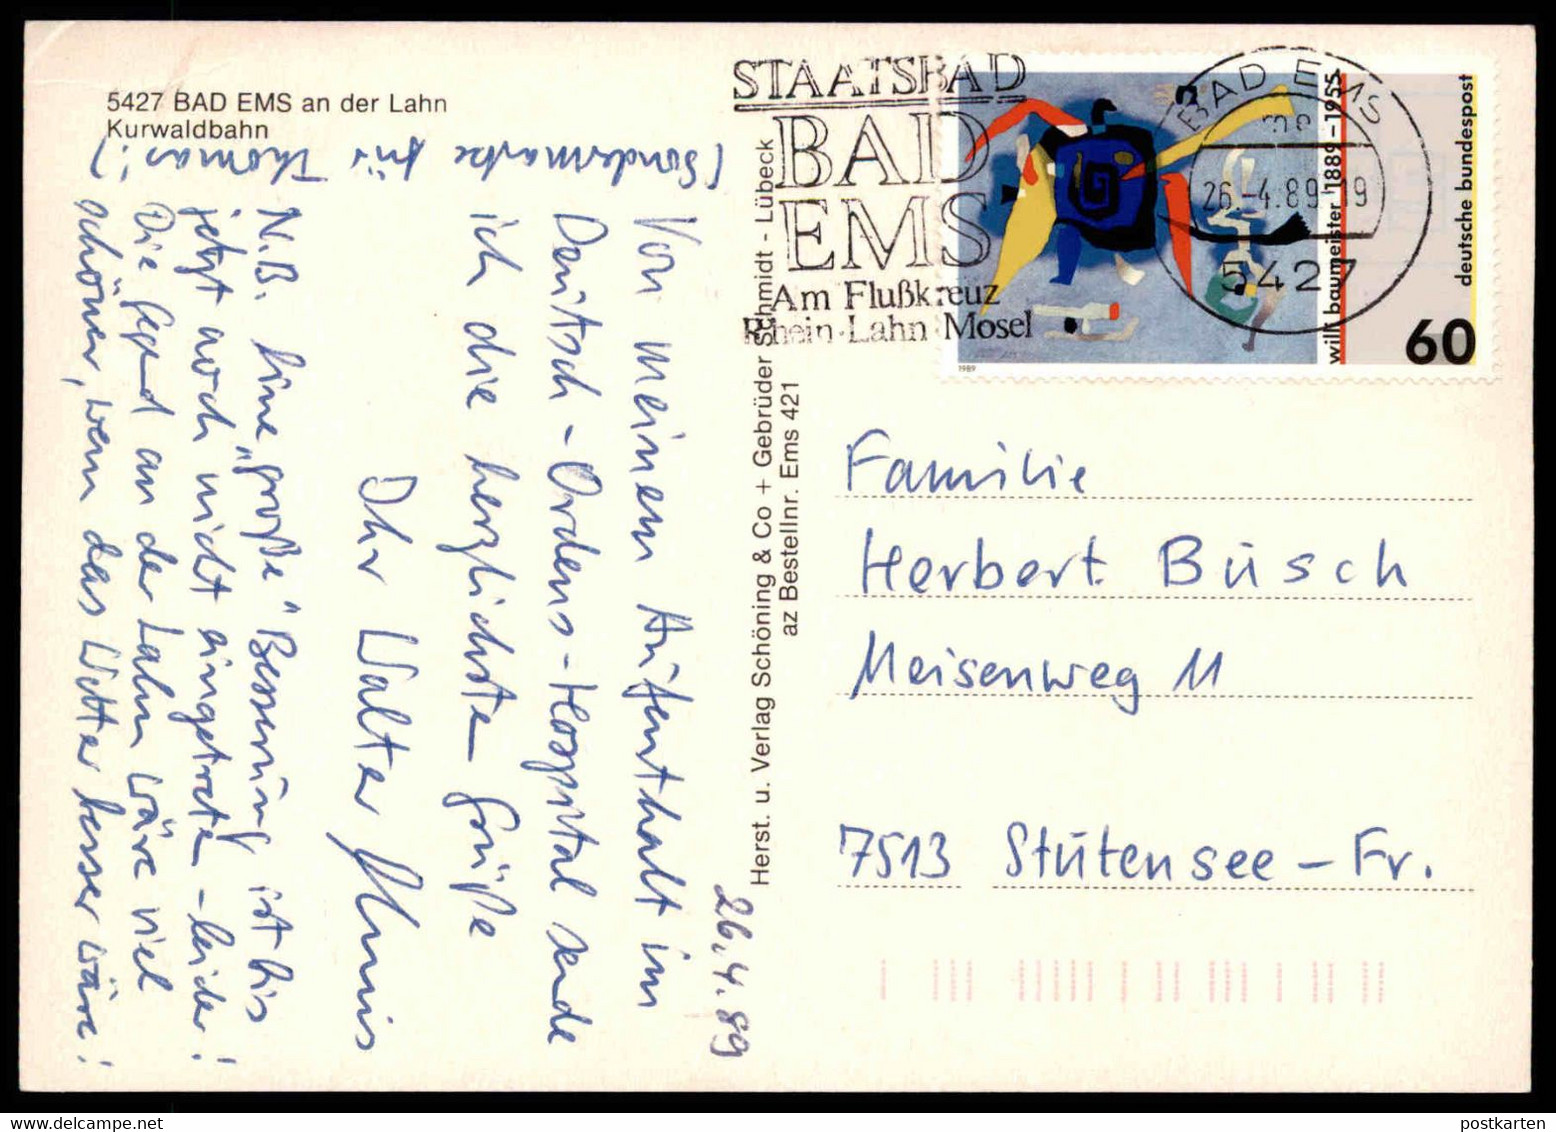 5427 BAD EMS an der Lahn
Kurwaldbahn
(Sondermarke für Thomas!)
Von meinem Aufenthalt im
Deutsch-Ordens-Hospital sende
ich die herzlichsten Grüße
Ihr Walter
N.B. Eine „große“ Besserung ist bis
jetzt noch nicht eingetreten – leider!
Die Gegend an der Lahn wäre viel
schöner, wenn das Wetter besser wäre!
26.4.89
Herst. u. Verlag Schöning & Co + Gebrüder Schmidt - Lübeck
az Bestellnr. Ems 421
STAATSBAD
BAD
EMS
Am Flußkreuz
Rhein-Lahn-Mosel
BAD EMS
26.-4.89.19
5427
1989
willi baumeister 1889–1955
deutsche bundespost
60
Familie
Herbert Busch
Meisenweg 11
7513 Stutensee – Fr.
postkarten